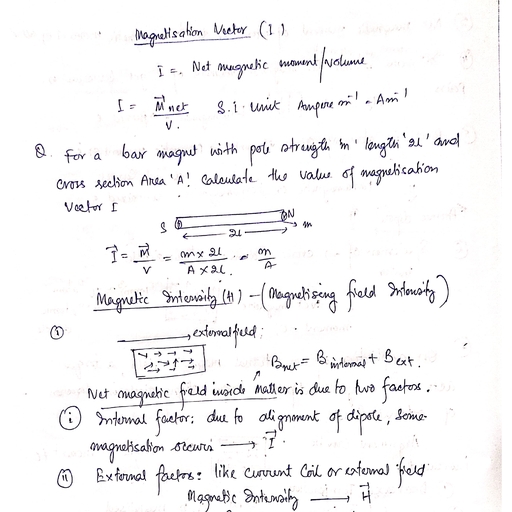 Magnetisation Vector (I)
I =. Net magnetic moment/volume
I = M⃗net / V. S.I. unit Ampere m⁻¹ = Am⁻¹
Q. For a bar magnet with pole strength 'm' length '2l' and
cross section Area 'A'. Calculate the value of magnetisation
Vector I
S N
2l m
I⃗ = M⃗ / V = m × 2l / A × 2l = m / A
Magnetic Intensity (H) - (Magnetising field Intensity)
(i) external field;
Bnet = Binternal + Bext.
Net magnetic field inside Matter is due to two factors.
(i) Internal factor: due to alignment of dipole, some-
magnetisation occurs → I⃗
(ii) External factor: like current coil or external field
Magnetic Intensity → H⃗